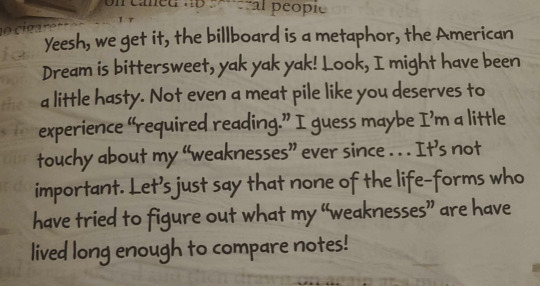 al people
Yeesh, we get it, the billboard is a metaphor, the American
Dream is bittersweet, yak yak yak! Look, I might have been
a little hasty. Not even a meat pile like you deserves to
experience “required reading.” I guess maybe I’m a little
touchy about my “weaknesses” ever since . . . It’s not
important. Let’s just say that none of the life-forms who
have tried to figure out what my “weaknesses” are have
lived long enough to compare notes!